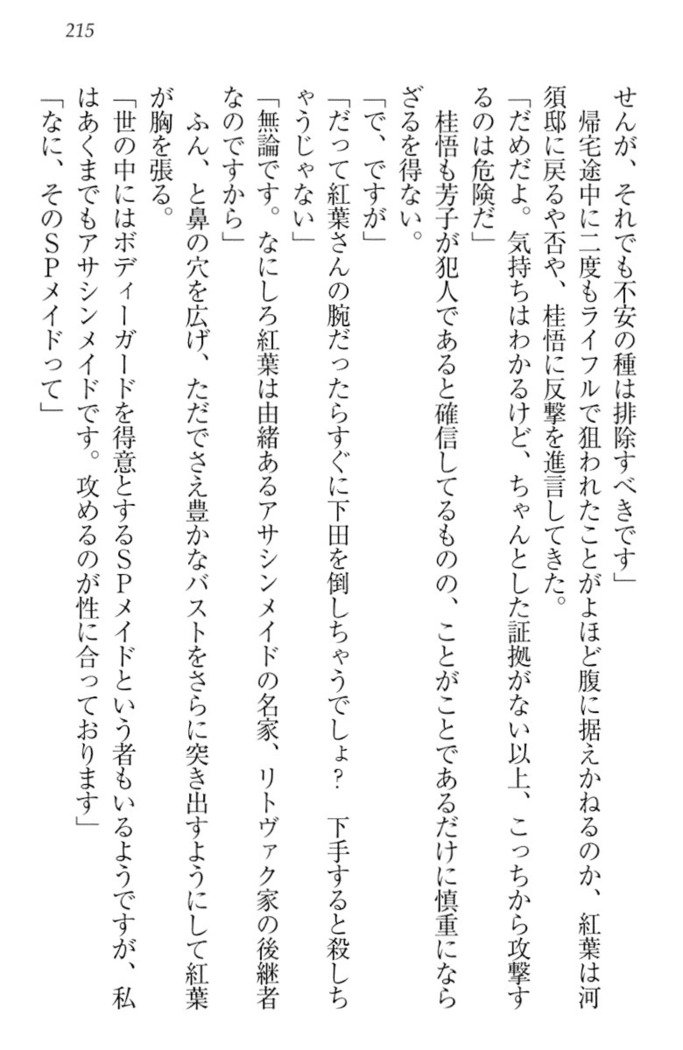 215
せんが、それでも不安の種は排除すべきです」
　帰宅途中に二度もライフルで狙われたことがよほど腹に据えかねるのか、紅葉は河
須邸に戻るや否や、桂悟に反撃を進言してきた。
「だめだよ。気持ちはわかるけど、ちゃんとした証拠がない以上、こっちから攻撃す
るのは危険だ」
　桂悟も芳子が犯人であると確信してるものの、ことがことであるだけに慎重になら
ざるを得ない。
「で、ですが」
「だって紅葉さんの腕だったらすぐに下田を倒しちゃうでしょ？　下手すると殺しち
ゃうじゃない」
「無論です。なにしろ紅葉は由緒あるアサシンメイドの名家、リトヴァク家の後継者
なのですから」
　ふん、と鼻の穴を広げ、ただでさえ豊かなバストをさらに突き出すようにして紅葉
が胸を張る。
「世の中にはボディーガードを得意とするＳＰメイドという者もいるようですが、私
はあくまでもアサシンメイドです。攻めるのが性に合っております」
「なに、そのＳＰメイドって」